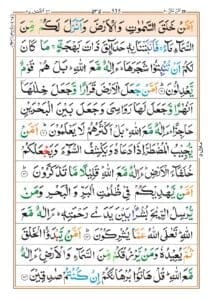 اَمَّنْ خَلَقَ السَّمٰوٰتِ وَالْاَرْضَ وَاَنْزَلَ لَكُمْ مِّنَ
السَّمَآءِ مَآءً ۚ فَاَنْۢبَتْنَا بِهٖ حَدَآئِقَ ذَاتَ بَهْجَةٍ ۚ مَا كَانَ
لَكُمْ اَنْ تُنْۢبِتُوْا شَجَرَهَا ؕ ءَاِلٰهٌ مَّعَ اللّٰهِ ؕ بَلْ هُمْ قَوْمٌ
يَّعْدِلُوْنَ ؕ اَمَّنْ جَعَلَ الْاَرْضَ قَرَارًا وَّجَعَلَ خِلٰلَهَاۤ
اَنْهٰرًا وَّجَعَلَ لَهَا رَوَاسِيَ وَجَعَلَ بَيْنَ الْبَحْرَيْنِ
حَاجِزًا ؕ ءَاِلٰهٌ مَّعَ اللّٰهِ ؕ بَلْ اَكْثَرُهُمْ لَا يَعْلَمُوْنَ ؕ اَمَّنْ
يُّجِيْبُ الْمُضْطَرَّ اِذَا دَعَاهُ وَيَكْشِفُ السُّوْٓءَ وَيَجْعَلُكُمْ
خُلَفَآءَ الْاَرْضِ ؕ ءَاِلٰهٌ مَّعَ اللّٰهِ ؕ قَلِيْلًا مَّا تَذَكَّرُوْنَ ؕ
اَمَّنْ يَّهْدِيْكُمْ فِيْ ظُلُمٰتِ الْبَرِّ وَالْبَحْرِ وَمَنْ
يُّرْسِلُ الرِّيٰحَ بُشْرًۢا بَيْنَ يَدَيْ رَحْمَتِهٖ ؕ ءَاِلٰهٌ مَّعَ
اللّٰهِ ؕ تَعٰلَى اللّٰهُ عَمَّا يُشْرِكُوْنَ ؕ اَمَّنْ يَّبْدَؤُا الْخَلْقَ
ثُمَّ يُعِيْدُهٗ وَمَنْ يَّرْزُقُكُمْ مِّنَ السَّمَآءِ وَالْاَرْضِ ؕ ءَاِلٰهٌ
مَّعَ اللّٰهِ ؕ قُلْ هَاتُوْا بُرْهَانَكُمْ اِنْ كُنْتُمْ صٰدِقِيْنَ